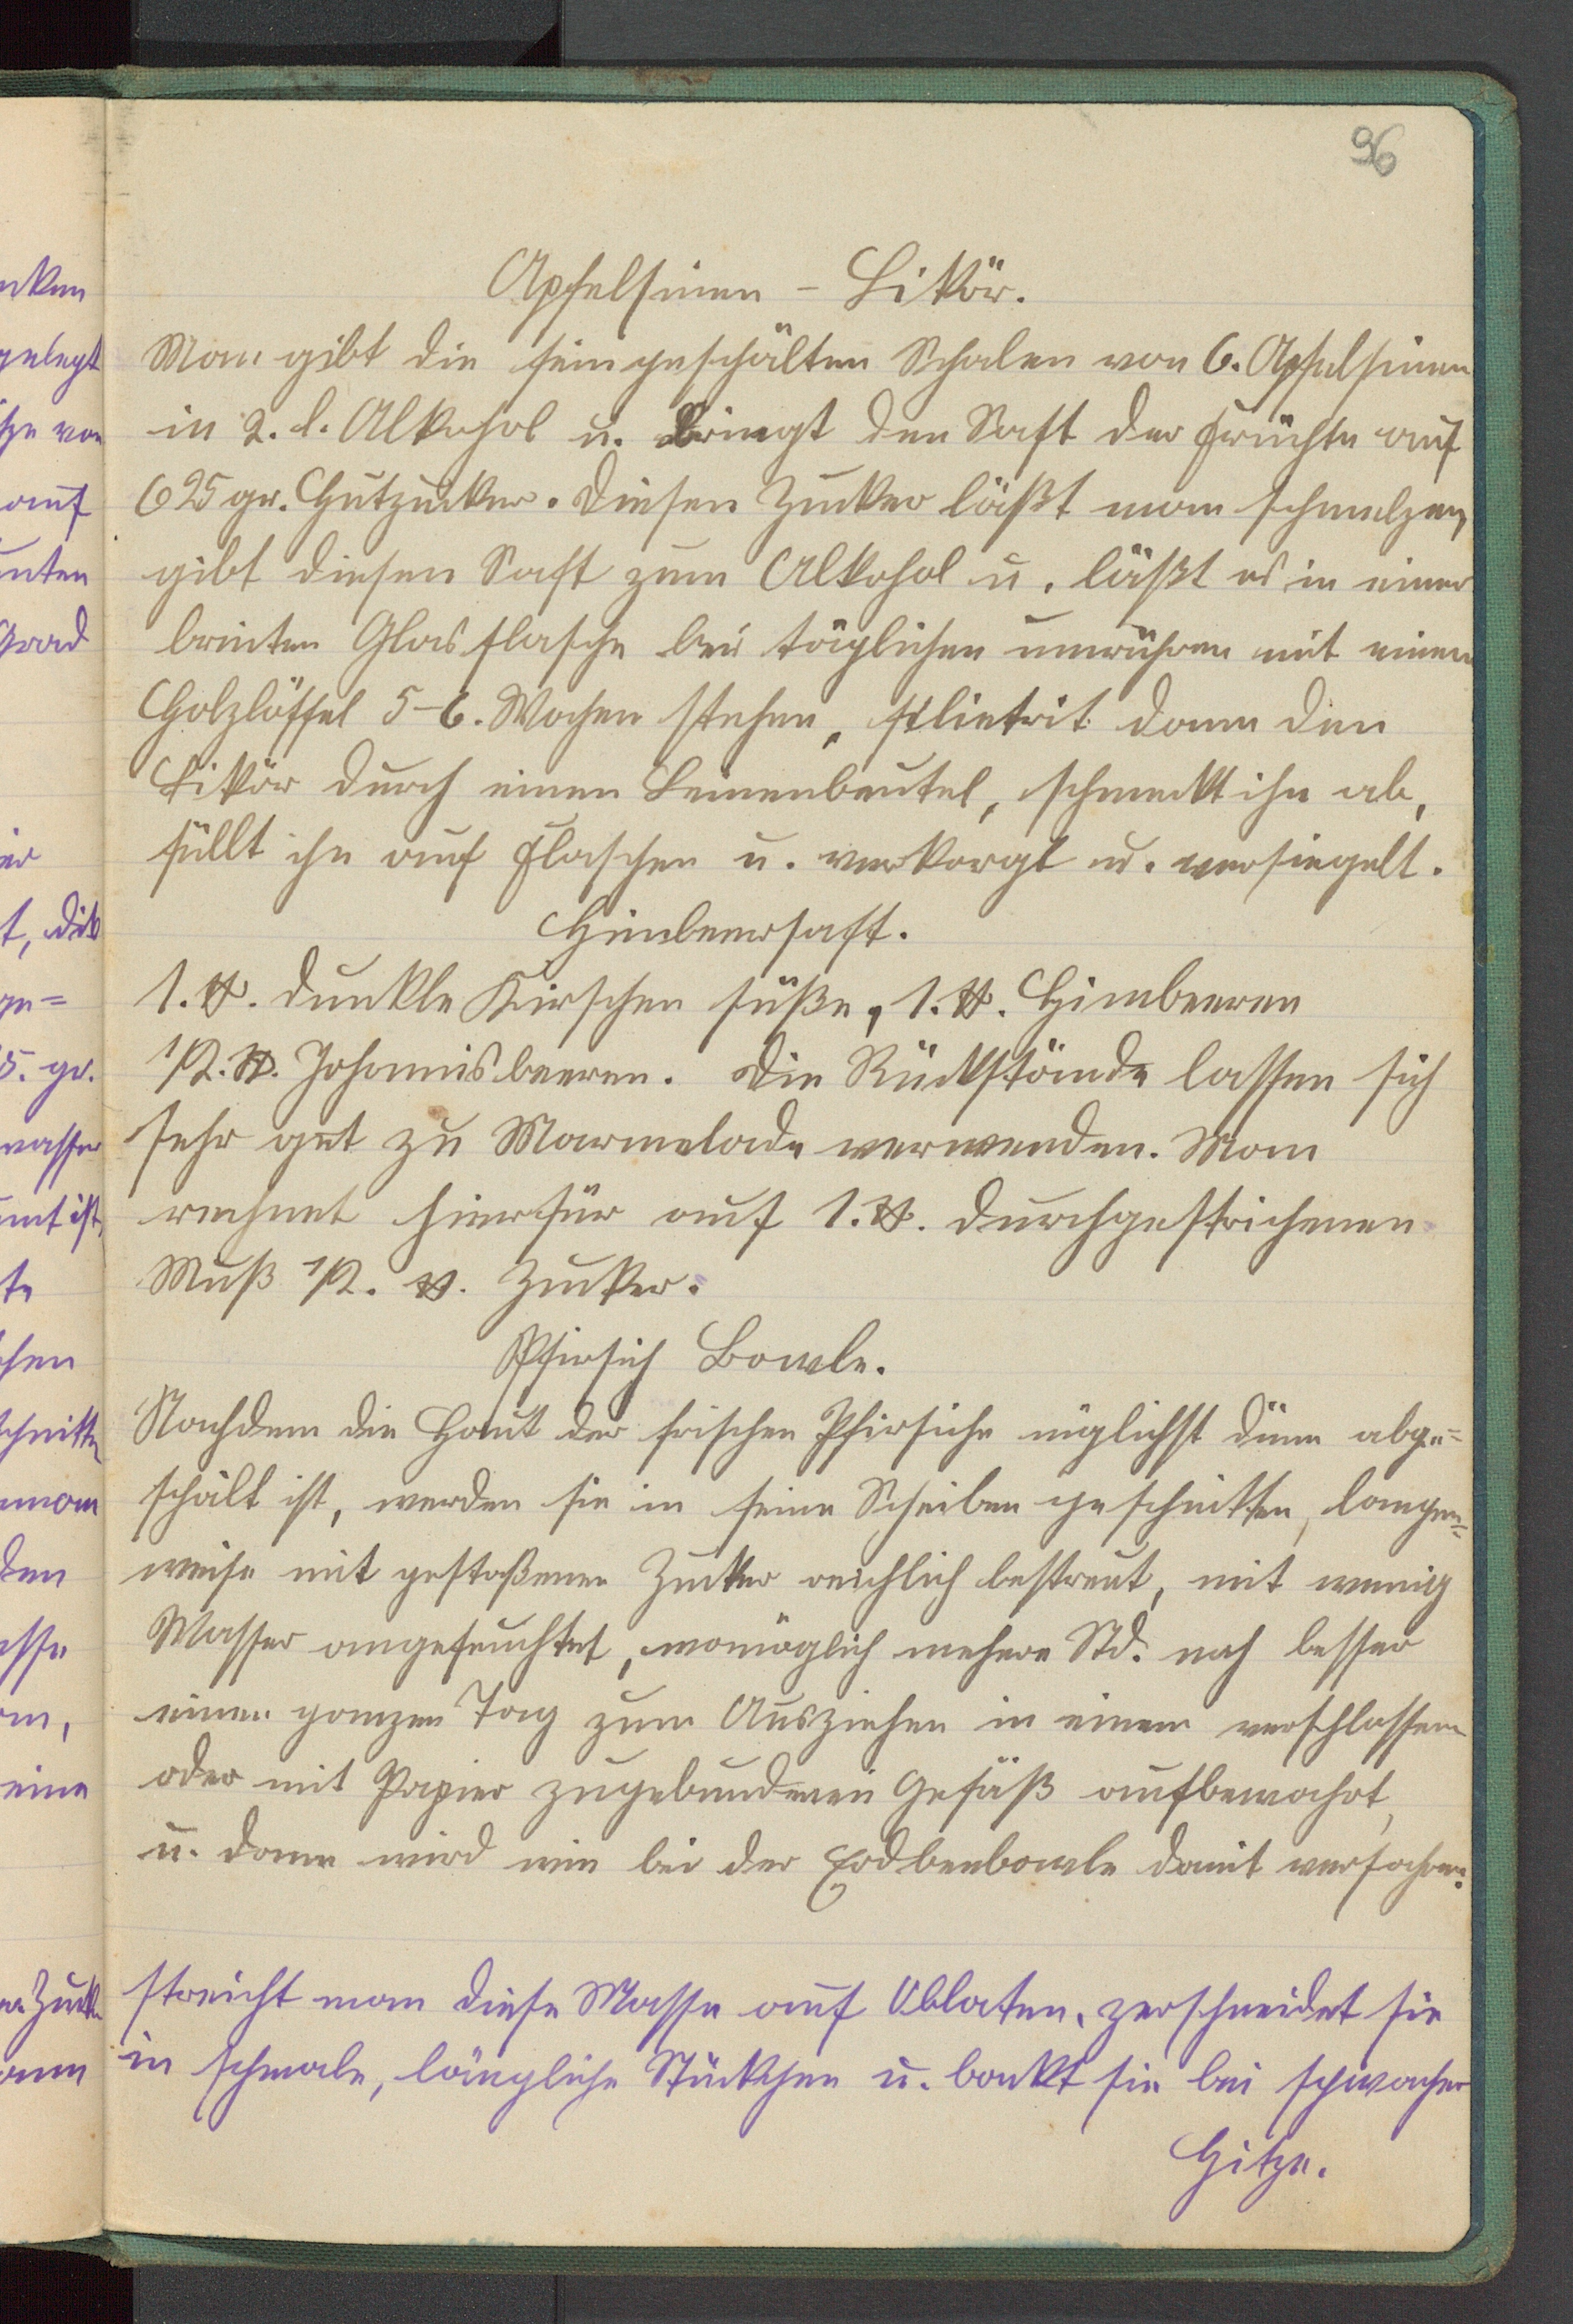 96
Apfelsinen - Likör.
Man gibt die feingeschälten Schalen von 6. Apfelsinen
in 2. l. Alkohol u. bringt den Saft der Früchte auf
625 gr. Hutzucker. Diesen Zucker läßt man schmelzen,
gibt diesen Saft zum Alkohol u. läßt es in einer
breiten Glasflasche bei täglichen umrühren mit einen
Holzlöffel 5-6. Wochen stehen, filietrit dann den
Likör durch einen Leinenbeutel, schmeckt ihn ab,
füllt ihn auf Flaschen u. verkorgt u. versiegelt.
Himbeersaft.
1. ℔. dunkle Kirschen süße, 1. ℔. Himbeeren
1/2. ℔. Johannisbeeren. Die Rückstände lassen sich
sehr gut zu Marmelade verwenden. Man
rechnet hierfür auf 1. ℔. durchgestrichenen
Muß 1/2. ℔. Zucker.
Pfirsich Bowle.
Nachdem die Haut der frischen Pfirsiche möglichst dünn abge=
schält ist, werden sie in feine Scheiben geschnitten, langen=
weise mit gestoßenen Zucker reichlich bestreut, mit wenig
Wasser angefeuchtet, womöglich mehere Std. noch besser
einen ganzen Tag zum Ausziehen in einem verschlossenen
oder mit Papier zugebundenen Gefäß aufbewahrt,
u. dann wird wie bei der Erdbeebowle damit verfahren.
streicht man diese Masse auf Oblaten, zerschneidet sie
in schmale, längliche Stückchen u. backt sie bei schwacher
Hitze.